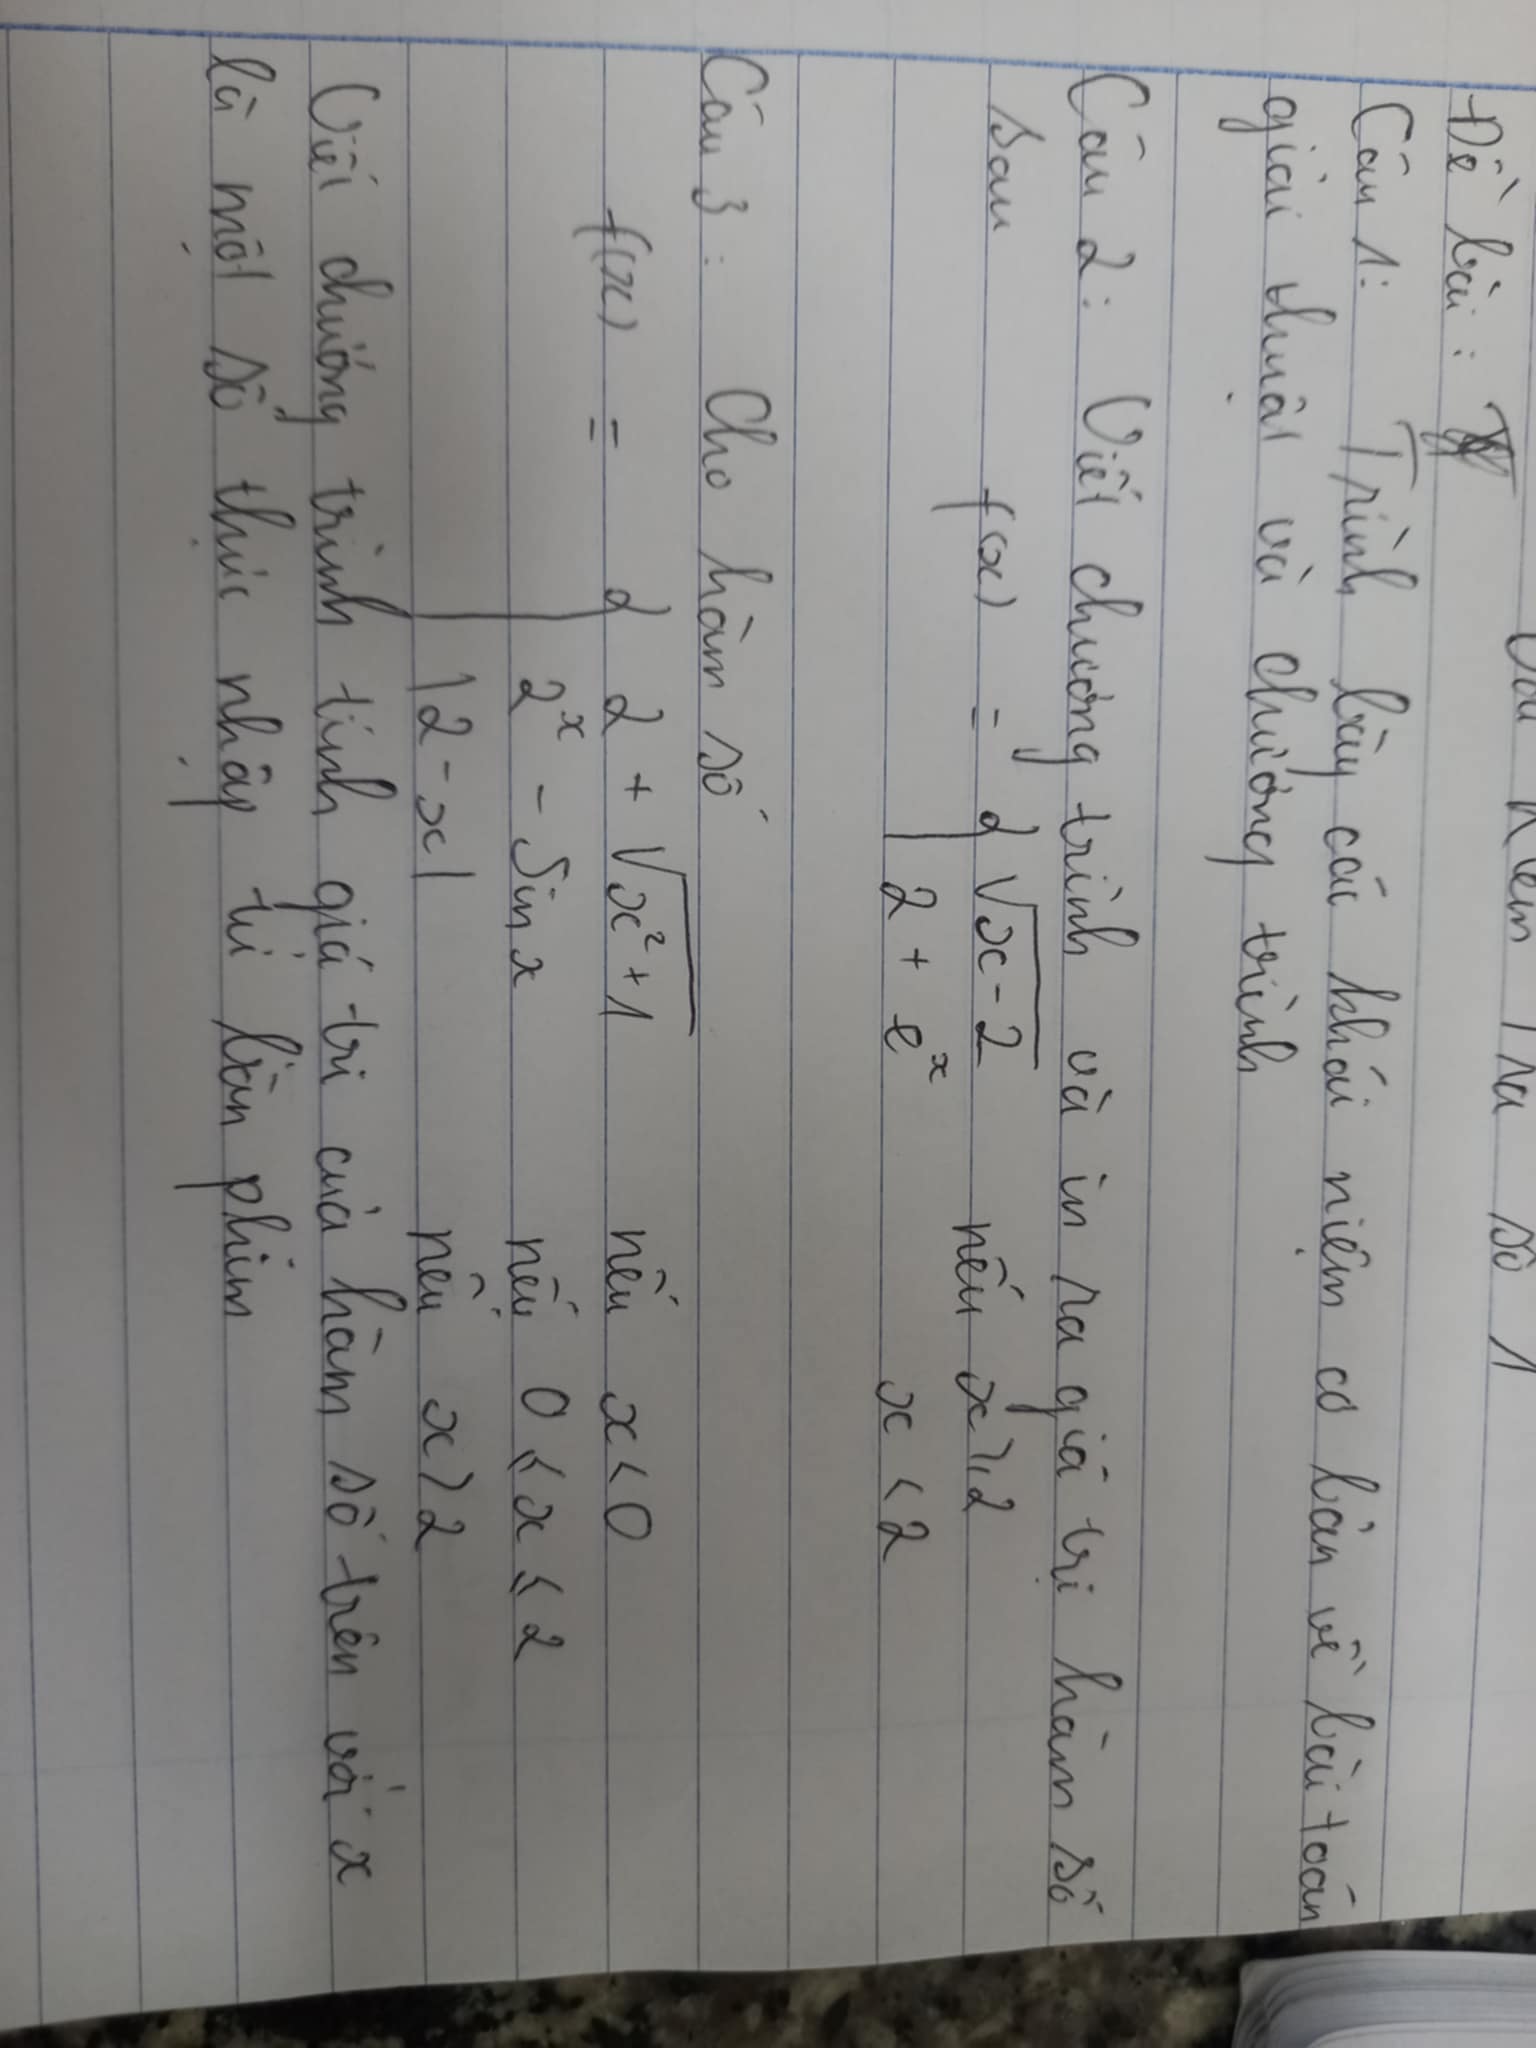 Bài Kiểm Tra Số 1
Đề bài:
Câu 1: Trình bày các khái niệm cơ bản về bài toán
giải thuật và chương trình
Câu 2: Viết chương trình và in ra giá trị hàm số
sau f(x) = { √(x-2) nếu x ≥ 2
2 + e^x x < 2
Câu 3: Cho hàm số
f(x) = { 2 + √(x²+1) nếu x < 0
2^x - Sin x nếu 0 ≤ x ≤ 2
|2-x| nếu x > 2
Viết chương trình tính giá trị của hàm số trên với x
là một số thực nhập từ bàn phím